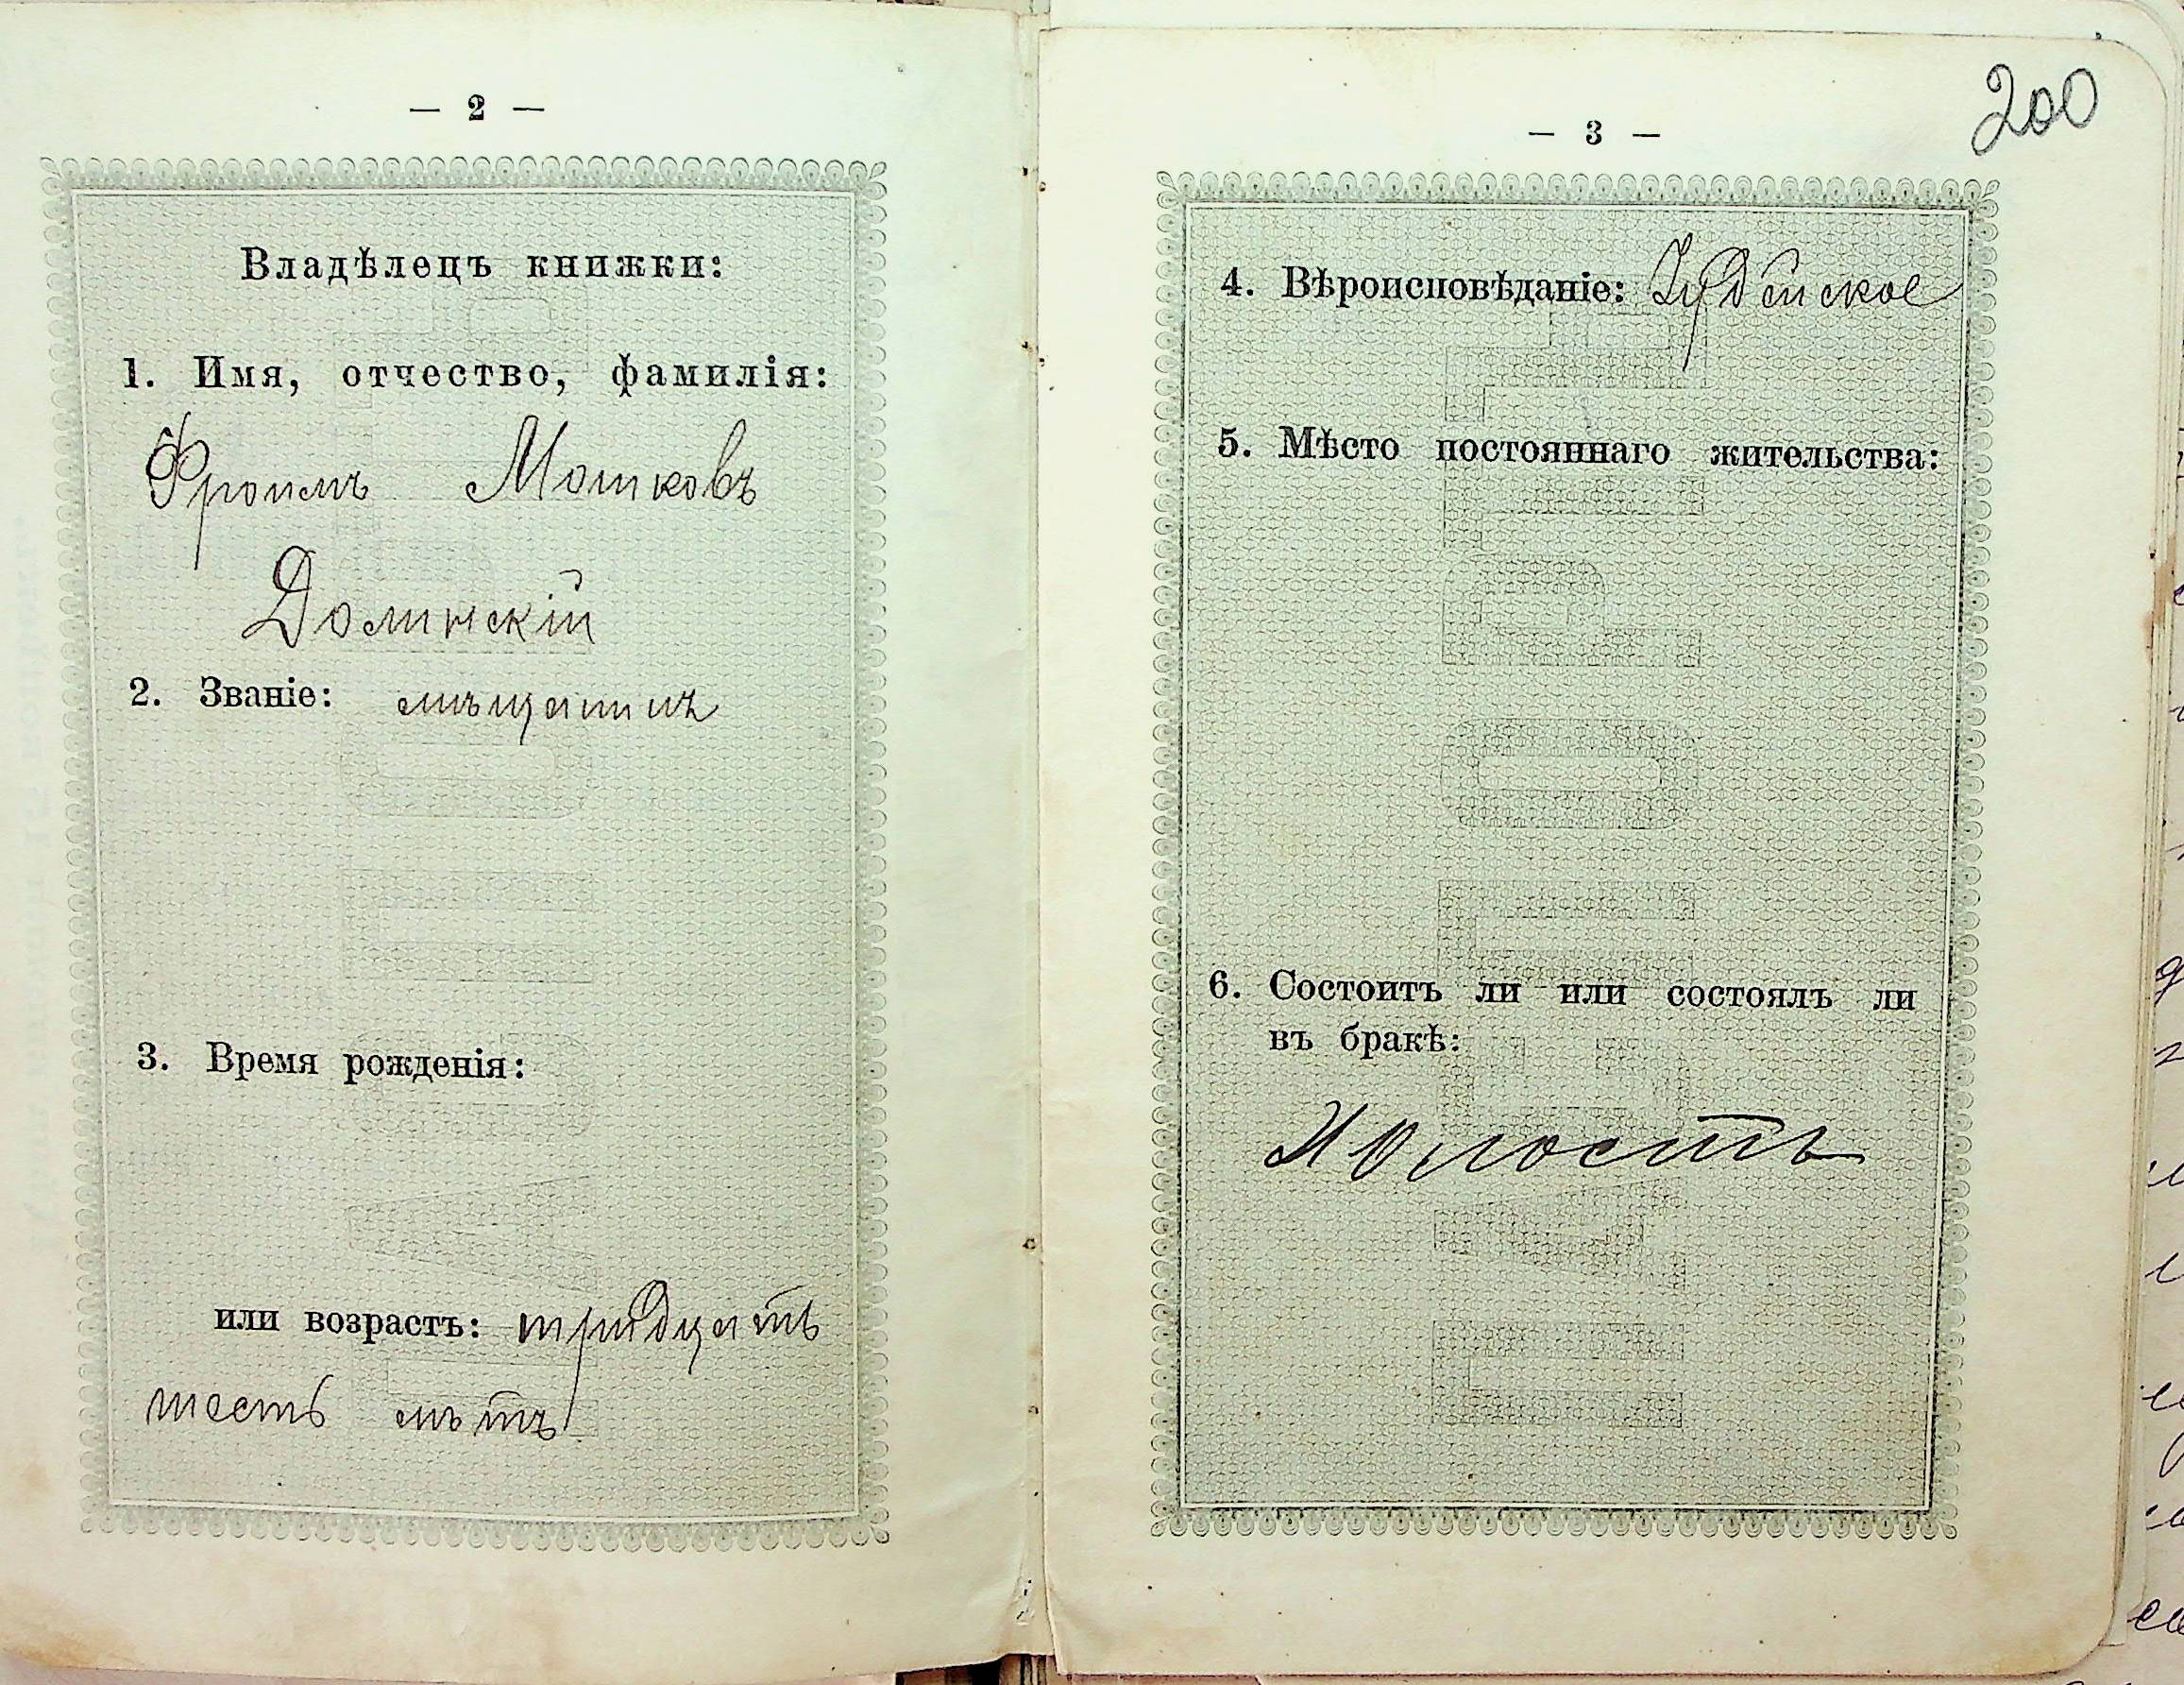 — 2 —
Владѣлецъ книжки:
1. Имя, отчество, фамилія:
Фроимъ Мошковъ
Долинскій
2. Званіе: мѣщанинъ
3. Время рожденія:
или возрастъ: тридцать
шесть лѣтъ
200
— 3 —
4. Вѣроисповѣданіе: Іудейское
5. Мѣсто постояннаго жительства:
6. Состоитъ ли или состоялъ ли
въ бракѣ:
Холостъ